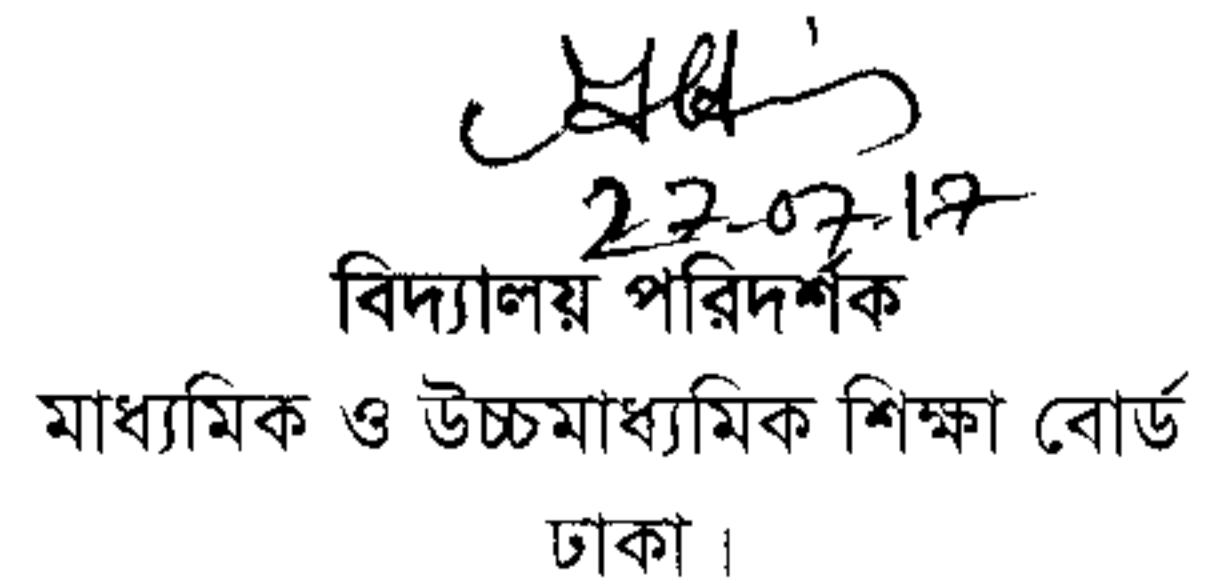 27-07-17
বিদ্যালয় পরিদর্শক
মাধ্যমিক ও উচ্চমাধ্যমিক শিক্ষা বোর্ড
ঢাকা।